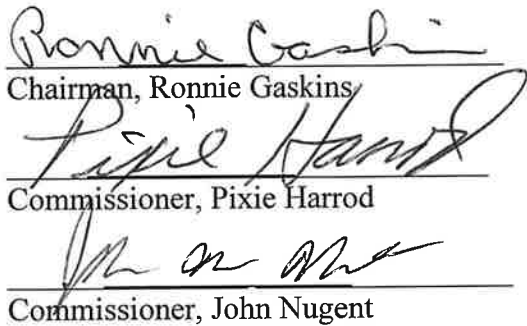 Ronnie Gaskins
Chairman, Ronnie Gaskins
Pixie Harrod
Commissioner, Pixie Harrod
John
Commissioner, John Nugent